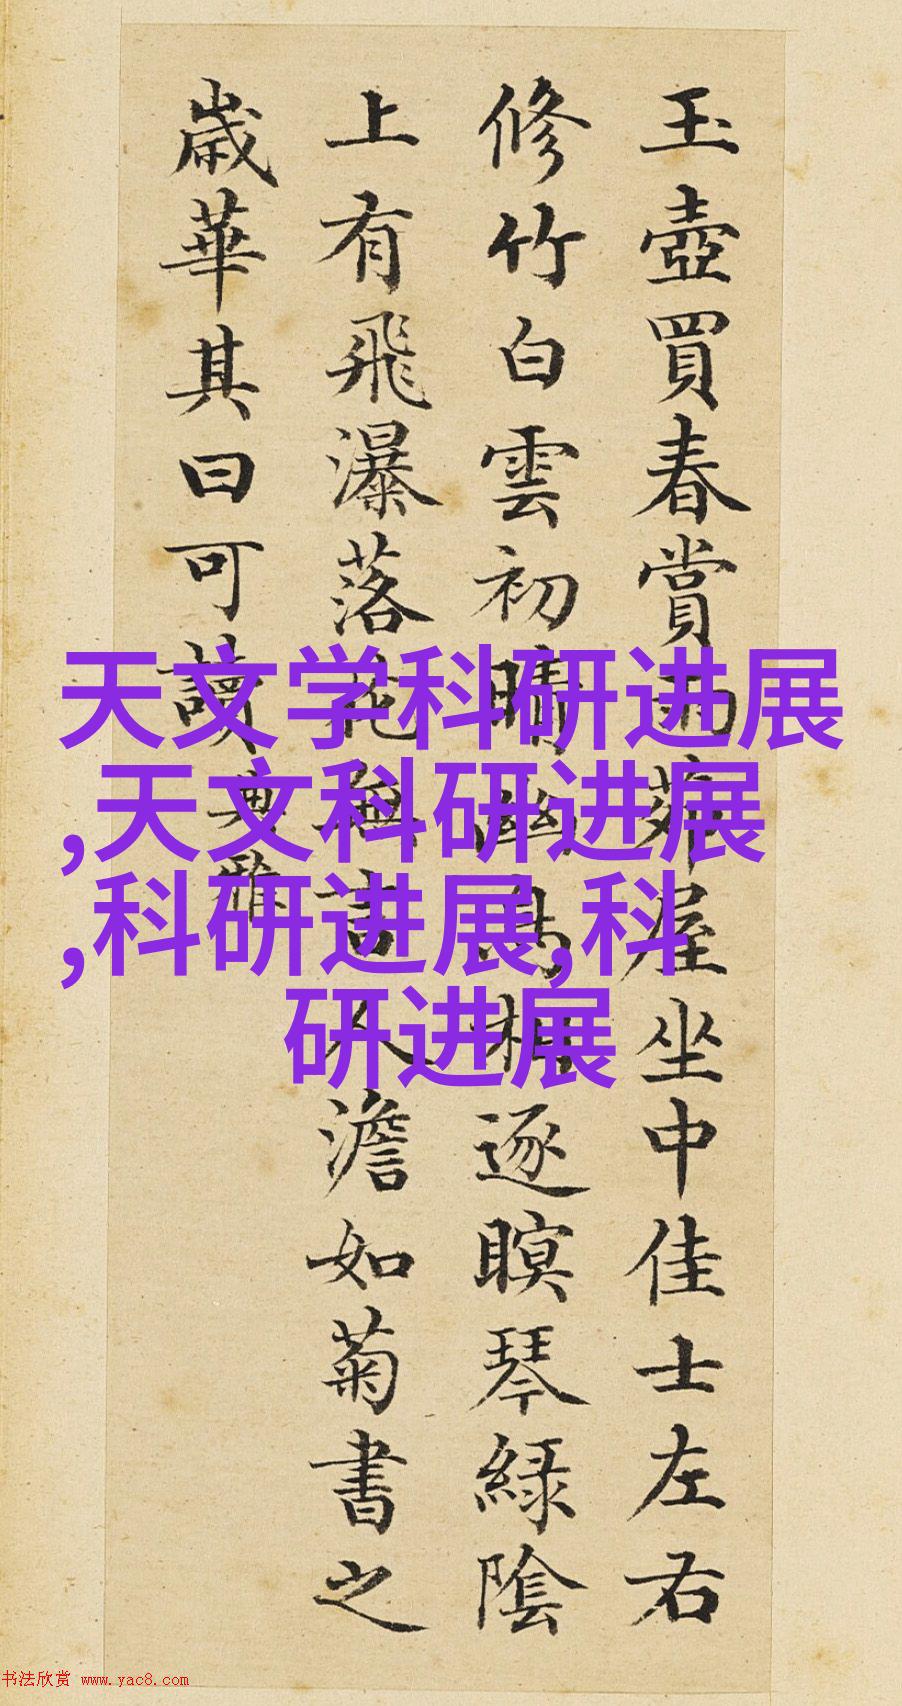 玉壺買春賞雨茆屋坐中佳士左右
修竹白雲初晴幽鳥相逐瞑琴綠陰
上有飛瀑落花無言人澹如菊書之
歲華其曰可讀
典雅
天文学科研进展
,天文科研进展
,科研进展,科
研进展
书法欣赏 www.yac8.com